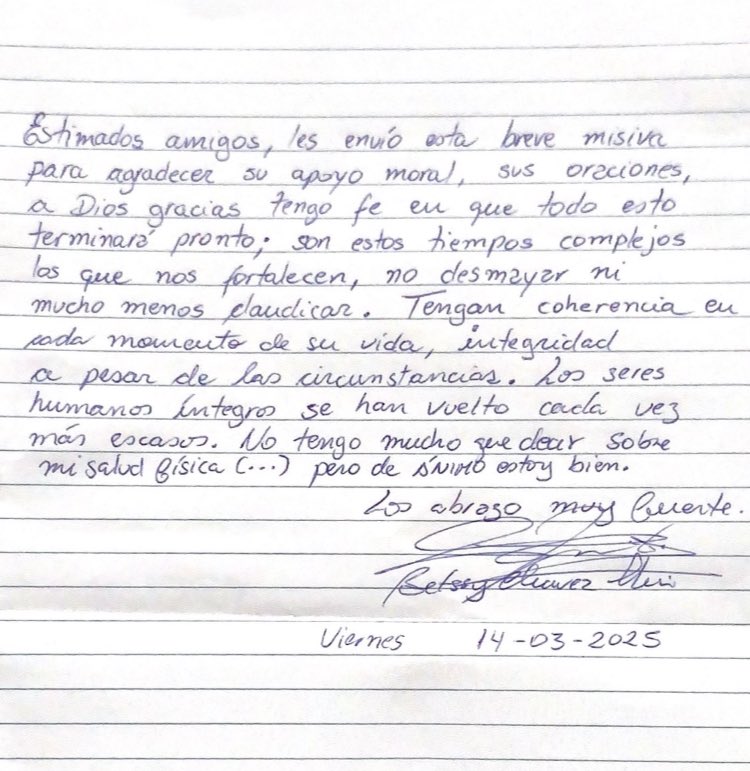 Estimados amigos, les envió esta breve misiva
para agradecer su apoyo moral, sus oraciones,
a Dios gracias tengo fe en que todo esto
terminará pronto; son estos tiempos complejos
los que nos fortalecen, no desmayar ni
mucho menos claudicar. Tengan coherencia en
cada momento de su vida, integridad
a pesar de las circunstancias. Los seres
humanos íntegros se han vuelto cada vez
más escasos. No tengo mucho que decir sobre
mi salud física (...) pero de ÁNIMO estoy bien.
Los abrazo muy fuerte.
Betssy Chavez
Viernes 14-03-2025